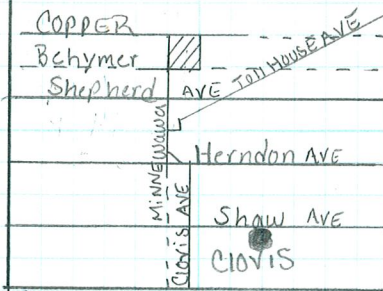 COPPER
Behymer
Shepherd AVE
TOLLHOUSE AVE
MINNEWAWA
Herndon AVE
CLOVIS AVE
Shaw AVE
CLOVIS